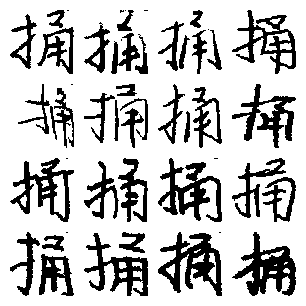 捅捅捅捅
捅捅捅捅
捅捅捅捅
捅捅捅捅